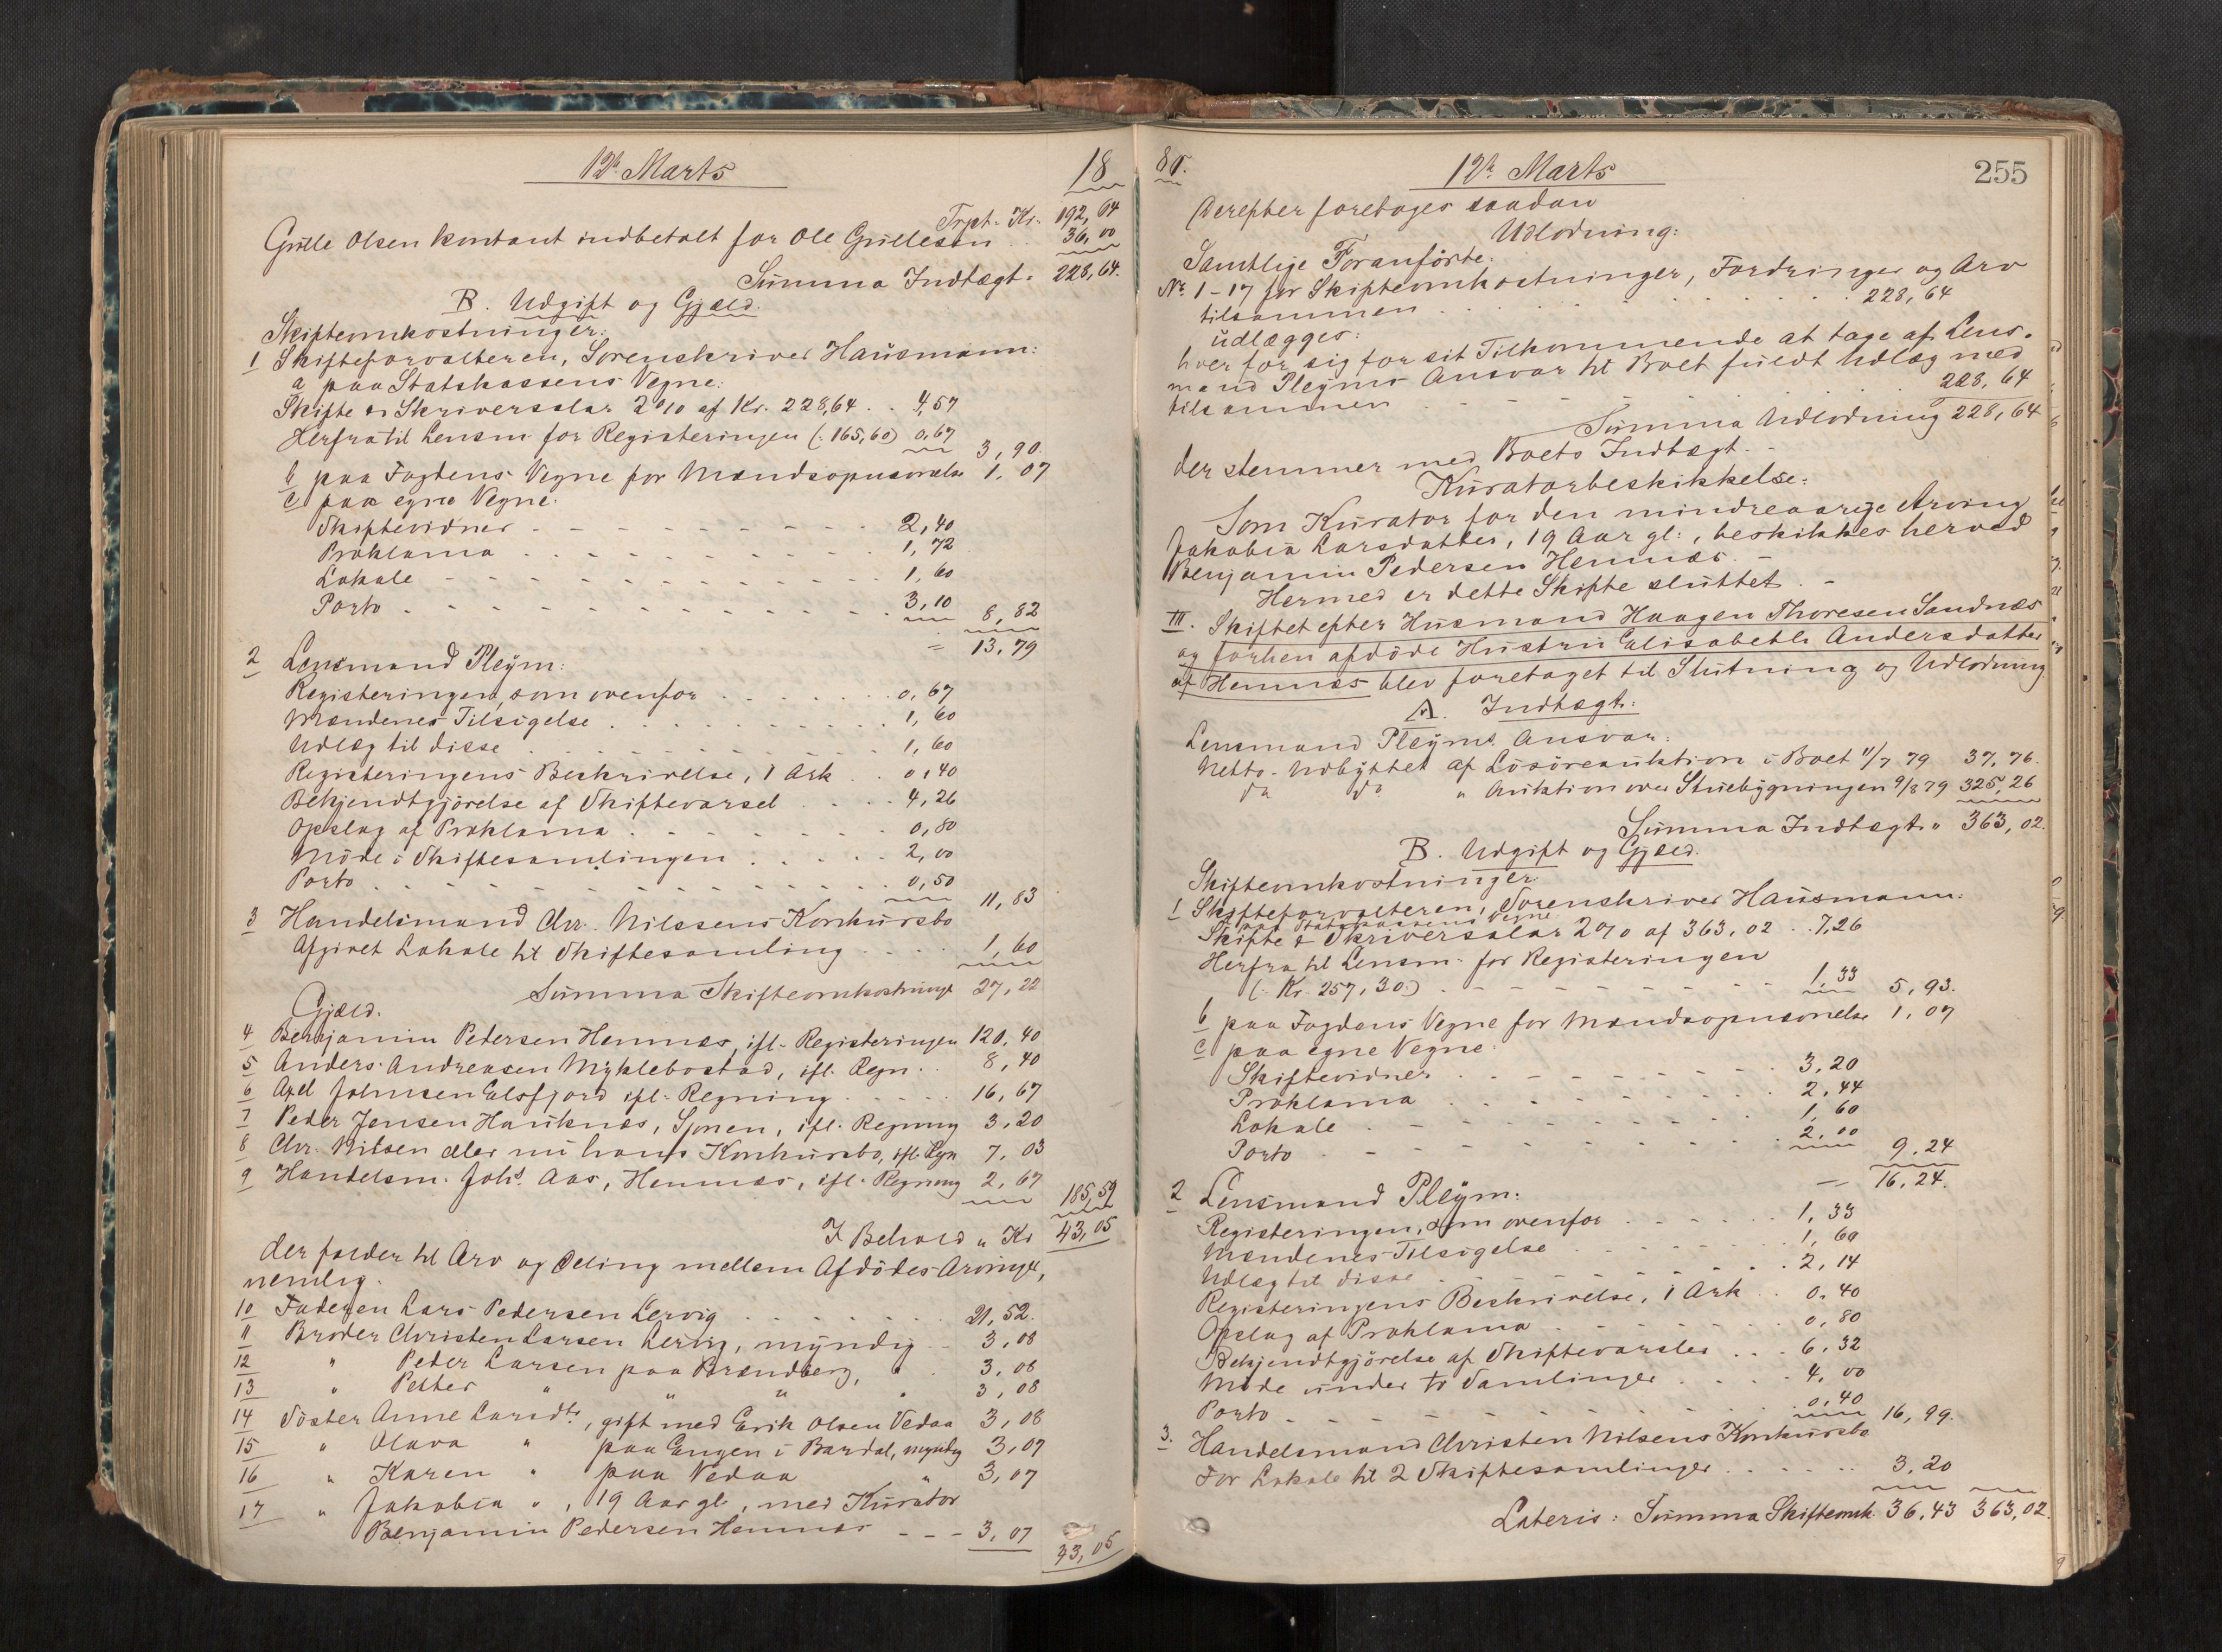 12te Marts
18
Trpt. Kr. 192,64
Grulle Olsen kontant indbetalt for Ole Grullesen . . 36,00
Summa Indtægt. 228,64.
B. Udgift og Gjæld.
Skifteomkostninger:
1 Skifteforvalteren, Sorenskriver Hausmann:
a paa Statskassens Vegne:
Skifte & Skriversalar 2% af Kr. 228,64 . . 4,57
Herfra til Lensm. for Registeringen (: 165,60) 0,67
3,90.
b paa Fogdens Vegne for Mændsopnævnelse 1,07
c paa egne Vegne:
Skiftevidner 2,40
Proklama 1,72
Lokale 1,60
Porto 3,10 8,82
= 13,79
2 Lensmand Pleÿm:
Registeringen, som ovenfor 0,67
Mændenes Tilsigelse 1,60
Udlæg til disse 1,60
Registeringens Beskrivelse, 1 Ark 0,40
Bekjendtgjörelse af Skiftevarsel 4,26
Opslag af Proklama 0,80
Möde i Skiftesamlingen 2,00
Porto 0,50
11,83
3 Handelsmand Chr. Nilssens Konkursbo
Afgivet Lokale til Skiftesamling 1,60
Summa Skifteomkostninger 27,22
Gjæld.
4 Benjamin Pedersen Hemnæs, ifl. Registeringen 120,40
5 Anders Andreasen Myklebostad, ifl. Regn. 8,40
6 Axel Johnsen Elsfjord ifl. Regning 16,67
7 Peder Jensen Hauknæs, Sjonen, ifl. Regning 3,20
8 Chr. Nilsen eller nu hans Konkursbo, ifl. Regn 7,03
9 Handelsm. Johs. Aas, Hemnæs, ifl. Regning 2,67
185,59
I Behold " Kr 43,05
der falder til Arv og Deling mellem Afdödes Arvinger,
nemlig.
10 Faderen Lars Pedersen Lervig 21,52.
11 Broder Christen Larsen Lervig, mÿndig 3,08
12 " Peder Larsen paa Brændberg, " 3,08
13 " Petter " " " " 3,08
14 Söster Anne Larsdtr., gift med Erik Olsen Vedaa 3,08
15 " Olava " paa Engen i Bardal, myndig 3,07
16 " Karen " paa Vedaa " 3,07
17 " Jakobia " , 19 Aar gl., med Kurator
Benjamin Pedersen Hemnæs - - - 3,07
43,05
80.
12te Marts
255
Derefter foretoges saadan
Udlodning:
Samtlige Foranförte:
No. 1-17 for Skifteomkostninger, Fordringer og Arv
tilsammen 228,64
udlægges:
hver for sig for sit Tilkommende at tage af Lens-
mand Pleÿms Ansvar til Boet fuldt Udlæg med
tilsammen 228,64
Summa Udlodning 228,64
der stemmer med Boets Indtægt.
Kuratorbeskikkelse:
Som Kurator for den mindreaarige Arving
Jakobia Larsdatter, 19 Aar gl., beskikkes herved
Benjamin Pedersen Hemnæs. -
Hermed er dette Skifte sluttet. -
III. Skiftet efter Husmand Haagen Thoresen Sandnæs
og forhen afdöde Hustru Elisabeth Andersdatter
af Hemnæs blev foretaget til Slutning og Udlodning
A. Indtægt:
Lensmand Pleÿms Ansvar:
Netto-Udbyttet af Lösöreauktion i Boet 11/7 79 37,76.
do do " Auktion over Stuebygningen 9/8 79 325,26
Summa Indtægt " 363,02.
B. Udgift og Gjæld.
Skifteomkostninger
1 Skifteforvalteren, Sorenskriver Hausmann:
paa Statskassens Vegne
Skifte & Skriversalar 2% af 363,02 . . 7,26
Herfra til Lensm. for Registeringen
(: Kr. 257,30:) 1,33 5,93.
b paa Fogdens Vegne for Mændsopnævnelse 1,07
c paa egne Vegne:
Skiftevidner 3,20
Proklama 2,44
Lokale 1,60
Porto 2,00 9,24
16,24.
2 Lensmand Pleÿm:
Registeringen, som ovenfor 1,33
Mændenes Tilsigelse 1,60
Udlæg til disse 2,14
Registeringens Beskrivelse, 1 Ark 0,40
Opslag af Proklama 0,80
Bekjendtgjörelse af Skiftevarsler 6,32
Möde under to Samlinger 4,00
Porto 0,40
16,99.
3. Handelsmand Christen Nilsens Konkursbo
For Lokale til 2 Skiftesamlinger 3,20
Lateris: Summa Skifteomk. 36,43 363,02.